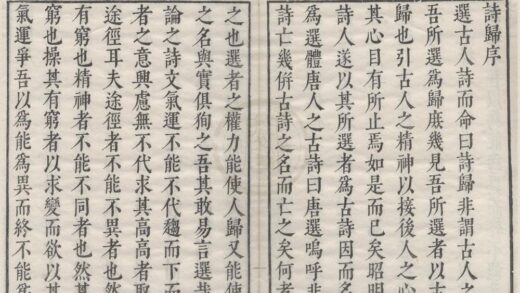 詩歸序
選古人詩而命曰詩歸非謂古人之
吾所選爲歸庶幾見吾所選者以古
歸也引古人之精神以接後人之心
其心目有所止焉如是而已矣昭明
詩人遂以其所選者爲古詩因而名
爲選體唐人之古詩曰唐選嗚呼非
詩亡幾併古詩之名而亡之矣何者
之也選者之權力能使人歸又能使
之名與實俱狥之吾其敢易言選哉
論之詩文氣運不能不代趨而下而
者之意興慮無不代求其高高者取
途徑耳夫途徑者不能不異者也然
有窮也精神者不能不同者也然其
窮也操其有窮者以求變而欲以其
氣運爭吾以爲能爲異而終不能爲